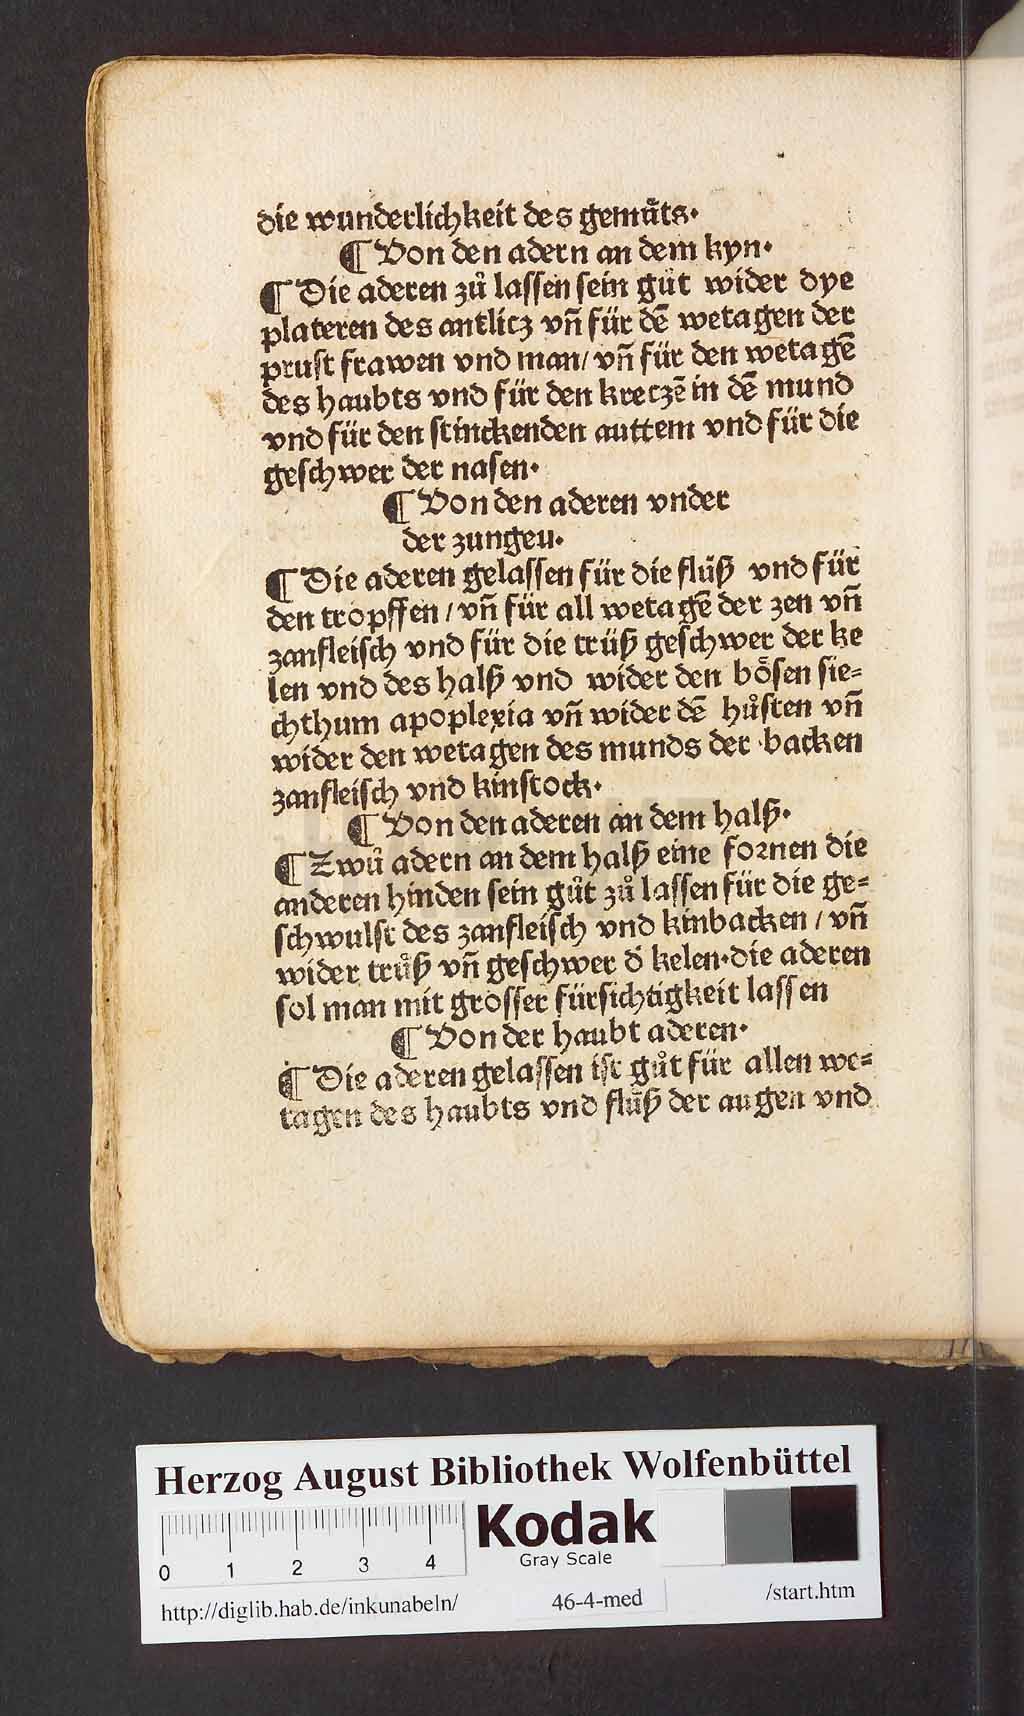 die wunderlichkeit des gemuͤts·
¶ Von den adern an dem kyn·
¶ Die aderen zuͦ lassen sein guͦt wider dye
plateren des antlitz vñ für dē wetagen der
prust frawen vnd man/ vñ für den wetagē
des haubts vnd für den kretzē in dē mund
vnd für den stinckenden auttem vnd für die
geschwer der nasen·
¶ Von den aderen vnder
der zungeu·
¶ Die aderen gelassen für die flüß vnd für
den tropffen / vñ für all wetagē der zen vñ
zanfleisch vnd für die trüß geschwer der ke
len vnd des halß vnd wider den boͤsen sie⸗
chthum apoplexia vñ wider dē huͦsten vñ
wider den wetagen des munds der backen
zanfleisch vnd kinstock·
¶ Von den aderen an dem halß·
¶ Zwuͦ adern an dem halß eine fornen die
anderen hinden sein guͦt zuͦ lassen für die ge⸗
schwulst des zanfleisch vnd kinbacken / vñ
wider truͤß vñ geschwer d̕ kelen·die aderen
sol man mit grosser fürsichtigkeit lassen
¶ Von der haubt aderen·
¶ Die aderen gelassen ist guͦt für allen we⸗
tagen des haubts vnd fluͤß der augen vnd
Herzog August Bibliothek Wolfenbüttel
0 1 2 3 4
Kodak
Gray Scale
http://diglib.hab.de/inkunabeln/ 46-4-med /start.htm